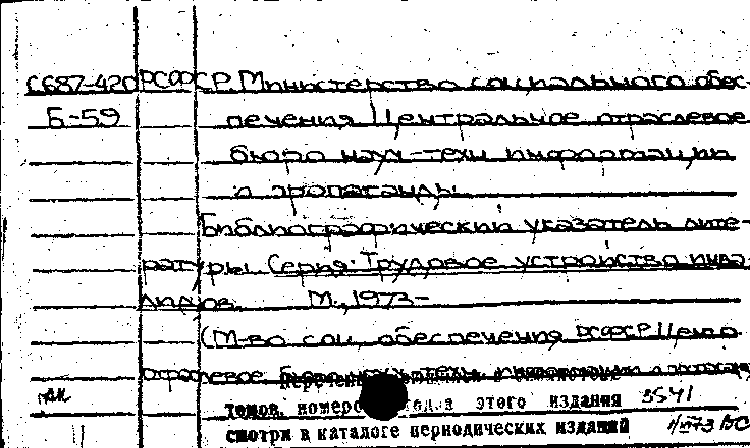 С687-420 РСФСР. Министерство социального обес-
Б-59 печения Центральное отраслевое
бюро науч-техн информации
и пропаганды.
Библиографический указатель лите-
ратуры. Серия: Трудовое устройство инва-
лидов. М., 1973-
(М-во соц. обеспечения РСФСР. Центр.
отраслевое бюро науч. техн. информации и
томов, номеров этого издания 3541
смотри в каталоге периодических изданий